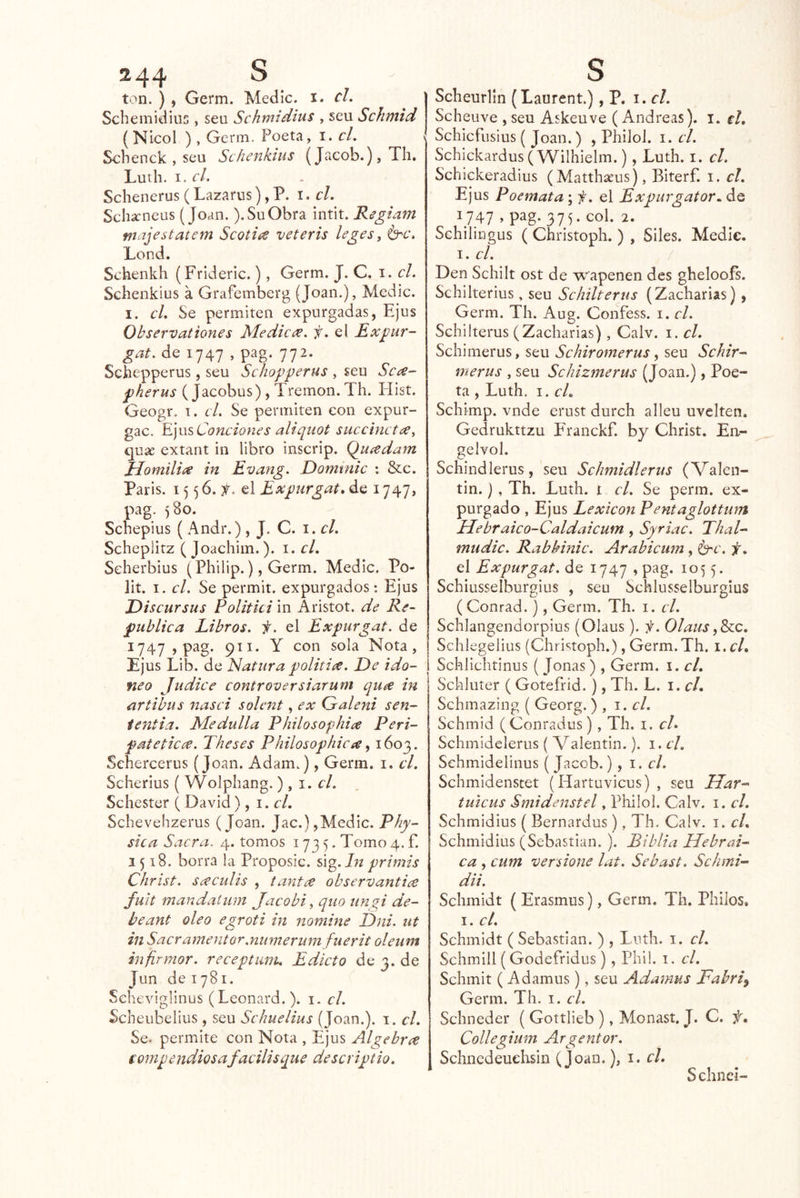 244 S
ton. ) , Germ. Medic. 1. cl.
Schemidius , seu Schmidius , seu Schmid
( Nicol ) , Germ. Poeta, 1. cl.
Schenck , seu Schenkius (Jacob.), Th.
Luth. 1. cl.
Schenerus ( Lazarus ), P. 1. cl.
Schæneus (Joan. ). Su Obra intit. Regiam
majestatem Scotiæ veteris leges, &c.
Lond.
Schenkh (Frideric. ) , Germ. J. C. 1. cl.
Schenkius à Grafemberg (Joan.), Medic.
1. cl. Se permiten expurgadas, Ejus
Observationes Medicæ. ℣. el Expur-
gat. de 1747 , pag. 772.
Schepperus, seu Schopperus , seu Scæ-
pherus (Jacobus), Tremon. Th. Hist.
Geogr. 1. cl. Se permiten con expur-
gac. Ejus Conciones aliquot succinctæ,
quæ extant in libro inscrip. Quædam
Homiliæ in Evang. Dominic : &c.
Paris. 1556. ℣. el Expurgat. de 1747,
pag. 580.
Schepius ( Andr.), J. C. 1. cl.
Scheplitz ( Joachim. ). 1. cl.
Scherbius ( Philip.), Germ. Medic. Po-
lit. 1. cl. Se permit. expurgados : Ejus
Discursus Politici in Aristot. de Re-
publica Libros. ℣. el Expurgat. de
1747 , pag. 911. Y con sola Nota ,
Ejus Lib. de Natura politiæ. De ido-
neo Judice controversiarum quæ in
artibus nasci solent , ex Galeni sen-
tentia. Medulla Philosophiæ Peri-
pateticæ. Theses Philosophicæ, 1603.
Schercerus ( Joan. Adam. ) , Germ. 1. cl.
Scherius ( Wolphang. ) , 1. cl.
Schester ( David ) , 1. cl.
Schevehzerus ( Joan. Jac.) , Medic. Phy-
sica Sacra. 4. tomos 1735. Tomo 4. f.
1518. borra la Proposic. sig. In primis
Christ. sæculis , tantæ observantiæ
fuit mandatum Jacobi, quo ungi de-
beant oleo egroti in nomine Dni. ut
in Sacramentor.numerum fuerit oleum
infirmor. receptum. Edicto de 3. de
Jun de 1781.
Scheviglinus ( Leonard. ). 1. cl.
Scheubelius , seu Schuelius (Joan.). 1. cl.
Se permite con Nota , Ejus Algebræ
compendiosa facilisque descriptio.
S
Scheurlin ( Laurent.) , P. 1. cl.
Scheuve , seu Askeuve ( Andreas). 1. cl.
Schicfusius ( Joan. ) , Philol. 1. cl.
Schickardus ( Wilhielm. ) , Luth. 1. cl.
Schickeradius ( Matthæus) , Biterf. 1. cl.
Ejus Poemata ; ℣. el Expurgator. de
1747 , pag. 375. col. 2.
Schilingus ( Christoph. ) , Siles. Medic.
1. cl.
Den Schilt ost de wapenen des gheloofs.
Schilterius , seu Schilterus (Zacharias) ,
Germ. Th. Aug. Confess. 1. cl.
Schilterus (Zacharias) , Calv. 1. cl.
Schimerus, seu Schiromerus , seu Schir-
merus , seu Schizmerus (Joan.) , Poe-
ta , Luth. 1. cl.
Schimp. vnde erust durch alleu uvelten.
Gedrukttzu Franckf. by Christ. En-
gelvol.
Schindlerus , seu Schmidlerus (Valen-
tin. ) , Th. Luth. 1 cl. Se perm. ex-
purgado , Ejus Lexicon Pentaglottum
Hebraico-Caldaicum , Syriac. Thal-
mudic. Rabbinic. Arabicum , &c. ℣.
el Expurgat. de 1747 , pag. 1055.
Schiusselburgius , seu Schlusselburgius
( Conrad. ) , Germ. Th. 1. cl.
Schlangendorpius (Olaus ). ℣. Olaus ,&c.
Schlegelius (Christoph.) , Germ. Th. 1. cl.
Schlichtinus ( Jonas ) , Germ. 1. cl.
Schluter ( Gotefrid. ) , Th. L. 1. cl.
Schmazing ( Georg. ) , 1. cl.
Schmid ( Conradus ) , Th. 1. cl.
Schmidelerus ( Valentin. ). 1. cl.
Schmidelinus ( Jacob. ) , 1. cl.
Schmidenstet (Hartuvicus) , seu Har-
tuicus Smidenstel , Philol. Calv. 1. cl.
Schmidius ( Bernardus ) , Th. Calv. 1. cl.
Schmidius (Sebastian. ). Biblia Hebrai-
ca , cum versione lat. Sebast. Schmi-
dii.
Schmidt ( Erasmus ) , Germ. Th. Philos.
1. cl.
Schmidt ( Sebastian. ) , Luth. 1. cl.
Schmill ( Godefridus ) , Phil. 1. cl.
Schmit ( Adamus ) , seu Adamus Fabri,
Germ. Th. 1. cl.
Schneder ( Gottlieb ) , Monast. J. C. ℣.
Collegium Argentor.
Schnedeuehsin (Joan. ), 1. cl.
Schnei-